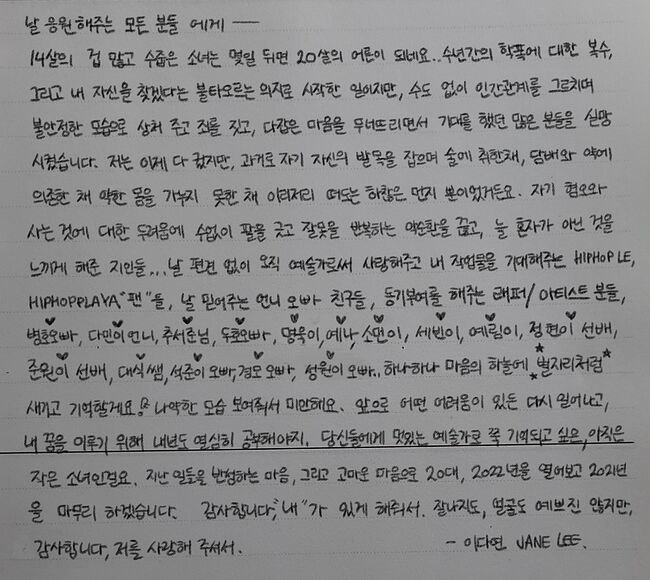 날 응원해주는 모든 분들 에게 —
14살의 겁 많고 수줍은 소녀는 몇일 뒤면 20살의 어른이 되네요.. 수년간의 학폭에 대한 복수,
그리고 내 자신을 찾겠다는 불타오르는 의지로 시작한 일이지만, 수도 없이 인간관계를 그르치며
불안정한 모습으로 상처 주고 죄를 짓고, 다잡은 마음을 무너뜨리면서 기대를 했던 많은 분들을 실망
시켰습니다. 저는 이제 다 컸지만, 과거로 자기 자신의 발목을 잡으며 술에 취한채, 담배와 약에
의존한 채 약한 몸을 가누지 못한 채 이리저리 떠도는 하찮은 먼지 뿐이었거든요. 자기 혐오와
사는 것에 대한 두려움에 수없이 팔을 긋고 잘못을 반복하는 악순환을 끊고, 늘 혼자가 아닌 것을
느끼게 해준 지인들... 날 편견 없이 오직 예술가로써 사랑해주고 내 작업물을 기대해주는 HIPHOPLE,
HIPHOPPLAYA "팬"들, 날 믿어주는 언니 오빠 친구들, 동기부여를 해주는 래퍼/아티스트 분들,
범호오빠, 다민이언니, 추서준님, 두호오빠, 명욱이, 예나, 소면이, 세빈이, 예림이, 정현이 선배,
준원이 선배, 대식쌤, 석준이 오빠, 경모 오빠, 성원이 오빠.. 하나하나 마음의 하늘에 별자리처럼
새기고 기억할게요! 나약한 모습 보여줘서 미안해요. 앞으로 어떤 어려움이 있든 다시 일어나고,
내 꿈을 이루기 위해 내년도 열심히 공부해야지. 당신들에게 멋있는 예술가로 쭉 기억되고 싶은, 아직은
작은 소녀인걸요. 지난 일들을 반성하는 마음, 그리고 고마운 마음으로 20대, 2022년을 열어보고 2021년
을 마무리 하겠습니다. 감사합니다, "내"가 있게 해줘서. 잘나지도, 얼굴도 예쁘진 않지만,
감사합니다, 저를 사랑해 주셔서. - 이다연 JANE LEE.